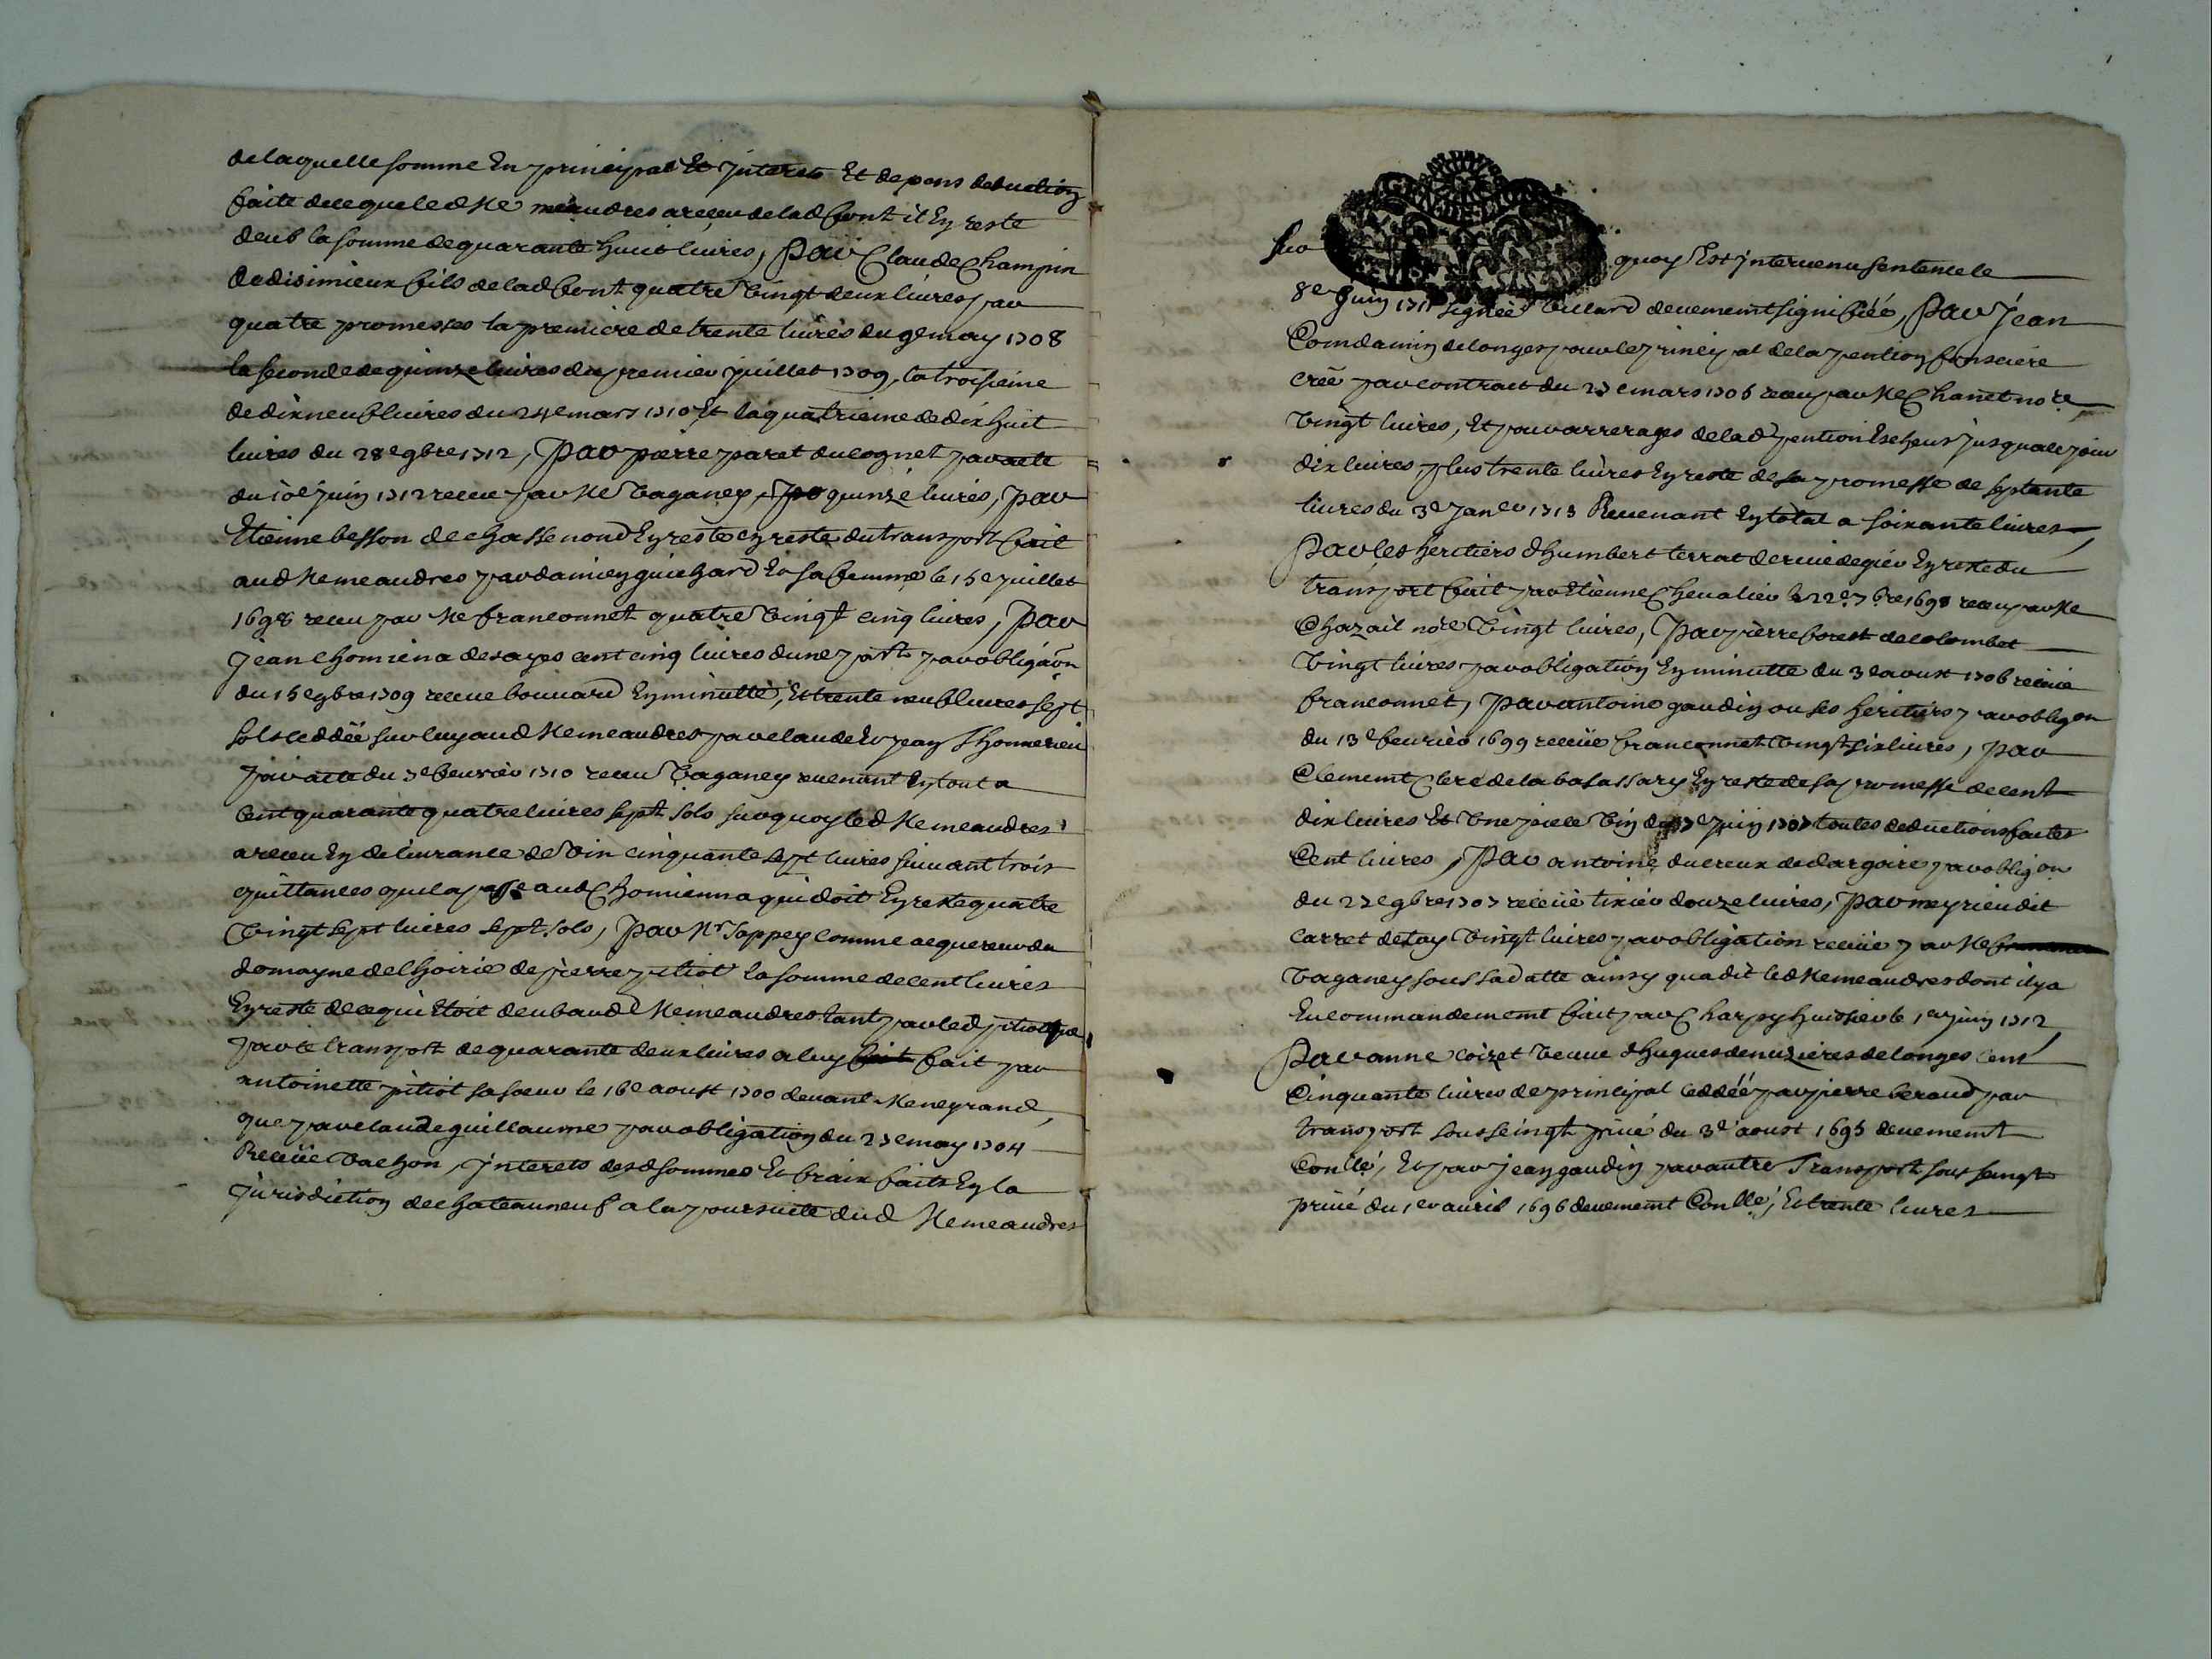 de laquelle somme En principal Et jnterets Et depens deduction
faite de ce que led Me meaudres a reçeu de lad font il En reste
deub la somme de quarante huit liures, Par Claude Champin
de disimieux fils de lad font quatre Vingt deux liures par
quatre promesses la premiere de trente liures du 9e may 1708
la seconde de quinze liures du premier juillet 1709, la troisieme
de dix neuf liures du 24e mars 1710 Et la quatrieme de dix huit
liures du 28e 9bre 1712, Par pierre paret du cognet par acte
du 10e juin 1712 receu par Me Vaganey, quinze liures, Par
Etienne besson de chassenoud En reste en reste du transport fait
aud Me meaudres par damien guichard Et sa femme le 15e juillet
1698 receu par Me franconnet quatre Vingt cinq liures, Par
Jean Chomiena de sayes cent cinq liures dune part par obligaon
du 15e 9bre 1709 receue bouuard En minutte, Et trente neuf liures sept
sols ceddée sur luy aud Me meaudres par claude Et jean
par acte du 7e feurier 1710 receu Vaganey reuenant En tout a
cent quarante quatre liures sept sols sur quoy led Me meaudres
a receu En deliurance de Vin cinquante sept liures suiuant trois
quittances quil a passé aud Chomienna qui doit En reste quatre
Vingt sept liures sept sols, Par Mr Jappey comme acquereur du
domayne de lhoirie de pierre pitiot la somme de cent liures
En reste de ce qui Etoit deub aud Me meaudres tant par led pitiot que
par le transport de quarante deux liures a luy fait fait par
antoinette pitiot sa soeur le 16e aoust 1700 deuant Me neyrand,
que par claude guillaume par obligation du 27e may 1704
Receüe Vachon, jnterets desd sommes Et fraix faits En la
jurisdiction de chateauneuf a la poursuitte dud Me meaudres
sur quoy Est jnteruenu sentence le
8e juin 1711 signée Villard deuement signifiée, Par Jean
Comdamin de longes pour le principal de la pention fonsciere
creé par contract du 27e mars 1706 receu par Me Chanet nore
Vingt liures, Et pour arrerages de lad pention Escheus jusqua ce jour
dix liures, plus trente liures En reste de sa promesse de septante
liures du 3e janer 1713 Reuenant En total a soixante liures
Par les heritiers dhumbert terrat de riue de gier En reste du
transport fait par Etienne Cheualier le 22e 7bre 1698 receu par Me
Chazail nore Vingt liures, Par pierre forest de colombet
Vingt liures par obligation En minutte du 3e aoust 1706 receüe
franconnet, Par antoine gaudin ou ses heritiers par obligon
du 13e feurier 1699 receüe franconnet Vingt six liures, Par
Clement Clerc de la bassary En reste de sa promesse de cent
dix liures Et Vne piece Vin du 7e juin 1707 toutes deductions faites
Cent liures, Par antoine ducreux de dargoire par obligon
du 27e 9bre 1707 receüe tixier douze liures, Par meyrieu dit
carret de Vingt liures par obligation receüe par Me
Vaganey sous sa datte ainsy qua dit led Me meaudres dont il y a
Eu commandement fait par Charpy huissier le 1er juin 1712,
Par anne coizet Veuue dhugues denuzieres de longes Cent
Cinquante liures de principal ceddéé par pierre beraud par
transport sous seingt priué du 3e aoust 1695 deuement
Conllé, Et par jean gaudin par autre Transport sous seingt
priué du 1er auril 1696 deuement Conllé, Et trente liures